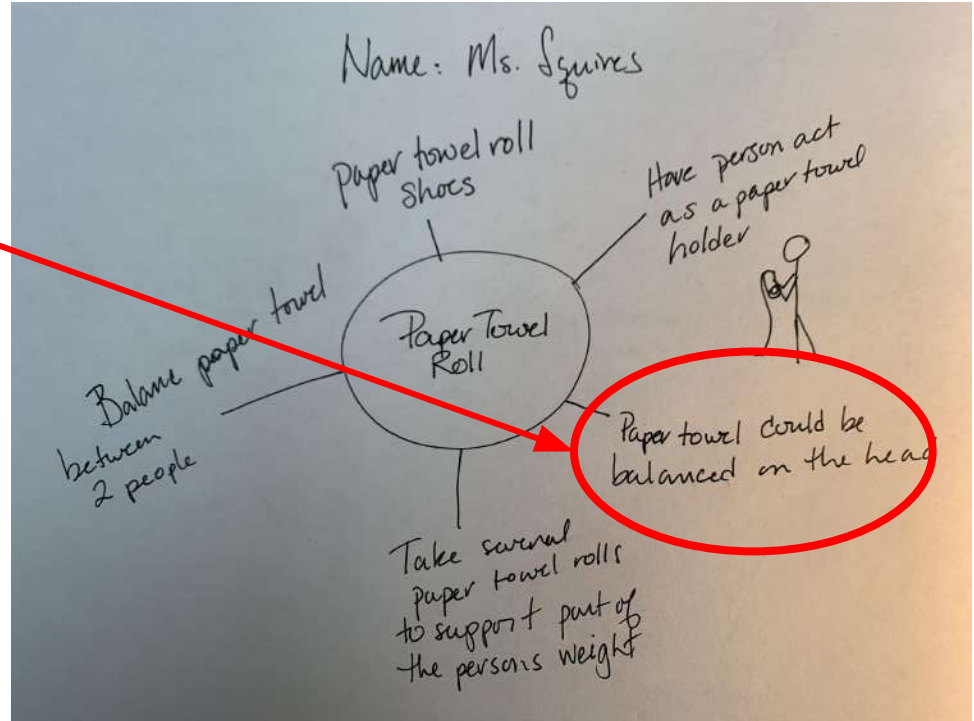 Name: Ms. Squires
Paper towel roll
Shoes
Have person act
as a paper towel
holder
Paper Towel
Roll
Balane paper towel
between
2 people
Paper towel could be
balanced on the head
Take several
paper towel rolls
to support part of
the persons weight